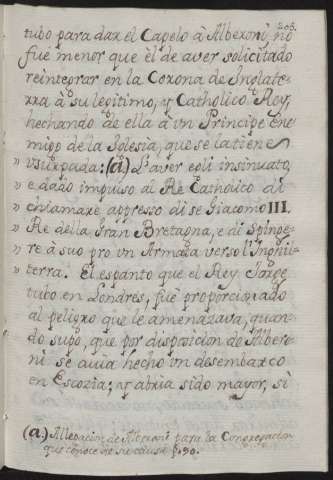 205.
tubo para dar el Capelo à Alberoni, no
fuè menor que èl de aver solicitado
reintegrar en la Corona de Inglate-
rra à su legitimo, y Catholico Rey,
hechando de ella à vn Principe ene-
migo de la Iglesia, que se la tiene
» vsurpada: (a.) L'aver egli insinuato,
» e dado impulso al Re Catholico di
» chiamare appresso di se Giacomo III.
» Re della Gran Bretagna, e di Spinge-
» re à suo pro vn Armata verso l'Inghil-
» terra. El espanto que el Rey Jorge
tubo en Londres, fuè proporcionado
al peligro que le amenazava, quan-
do supo, que por disposicion de Albero-
ni se avia hecho vn desembarco
en Escozia; y abria sido mayor, si
(a.) Allegacion de Alberoni para la Congregacion
que conoce de su causa §. 90.